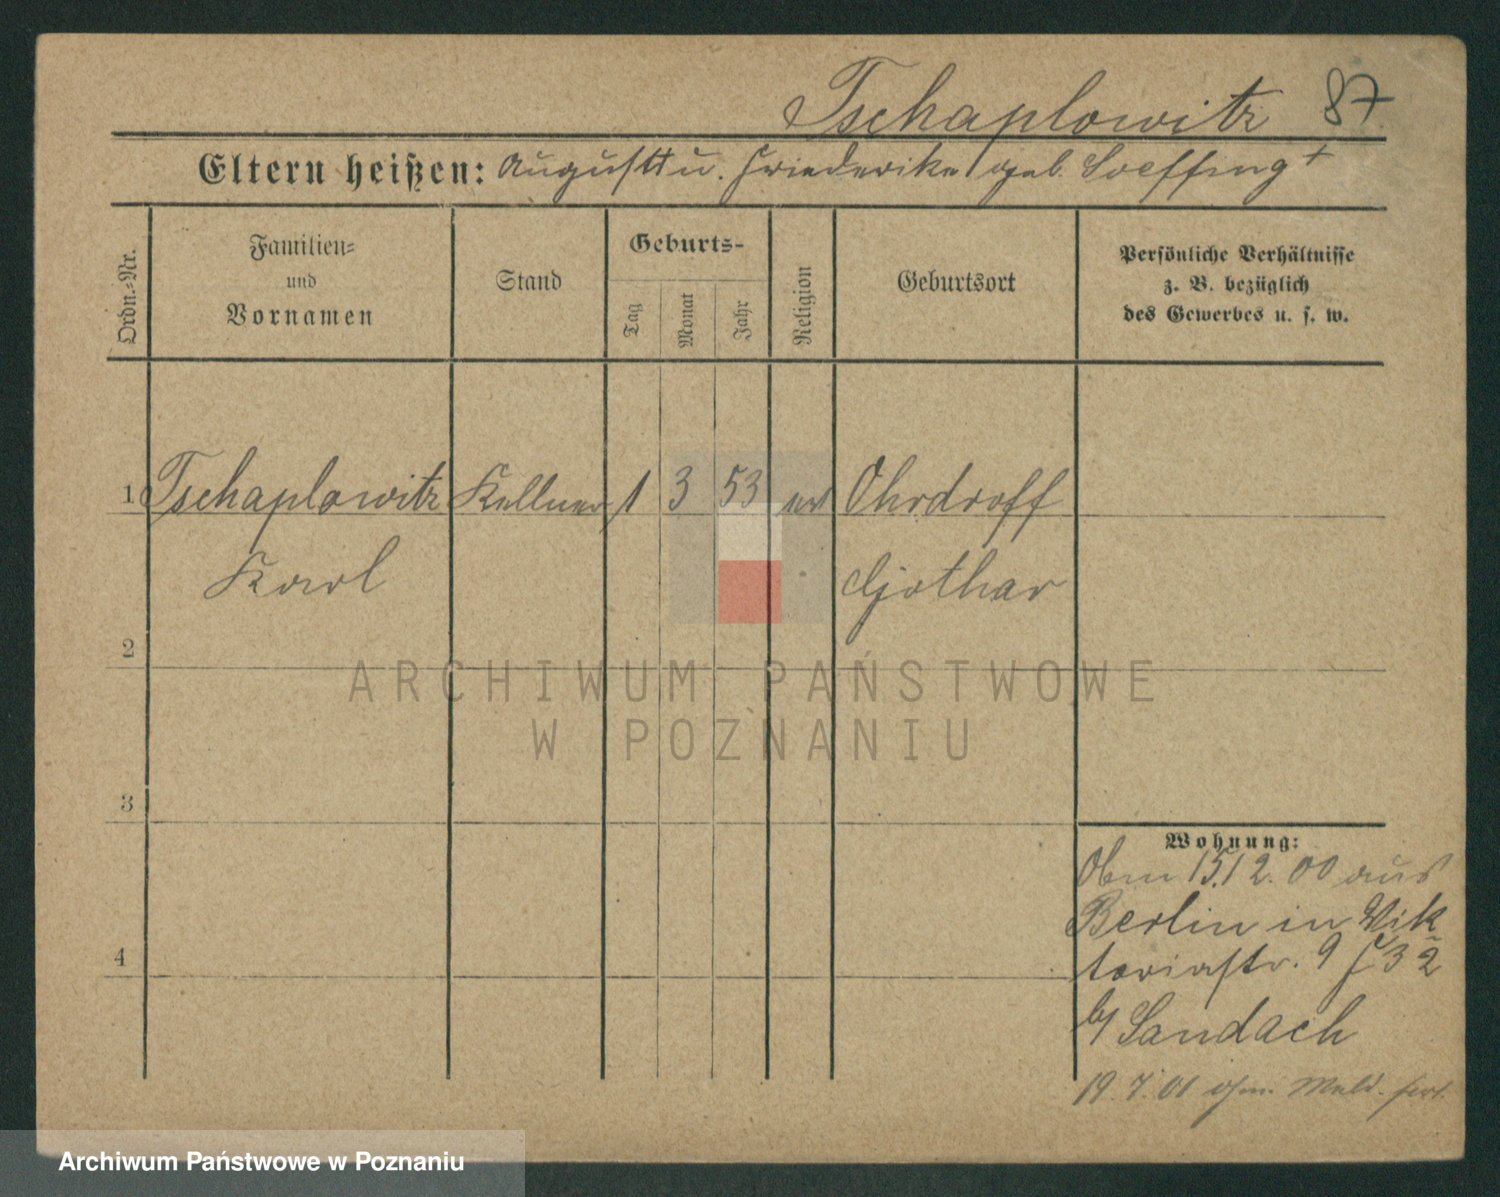 Tschaplowitz 87
Eltern heißen: August u. Friederike geb. Soeffing +
Ordn.-Nr.
Familien-
und
Vornamen
Stand
Geburts-
Tag
Monat
Jahr
Religion
Geburtsort
Persönliche Verhältnisse
z. B. bezüglich
des Gewerbes u. s. w.
1 Tschaplowitz Kellner 1 3 53 ev Ohrdroff
Karl Gothar
2
3
4
Wohnung:
15.12.00 aus
Berlin in Vik
toriastr. 9
b/ Sandach
19.7.01 ohn. Meld. fort.
ARCHIWUM PAŃSTWOWE
W POZNANIU
Archiwum Państwowe w Poznaniu